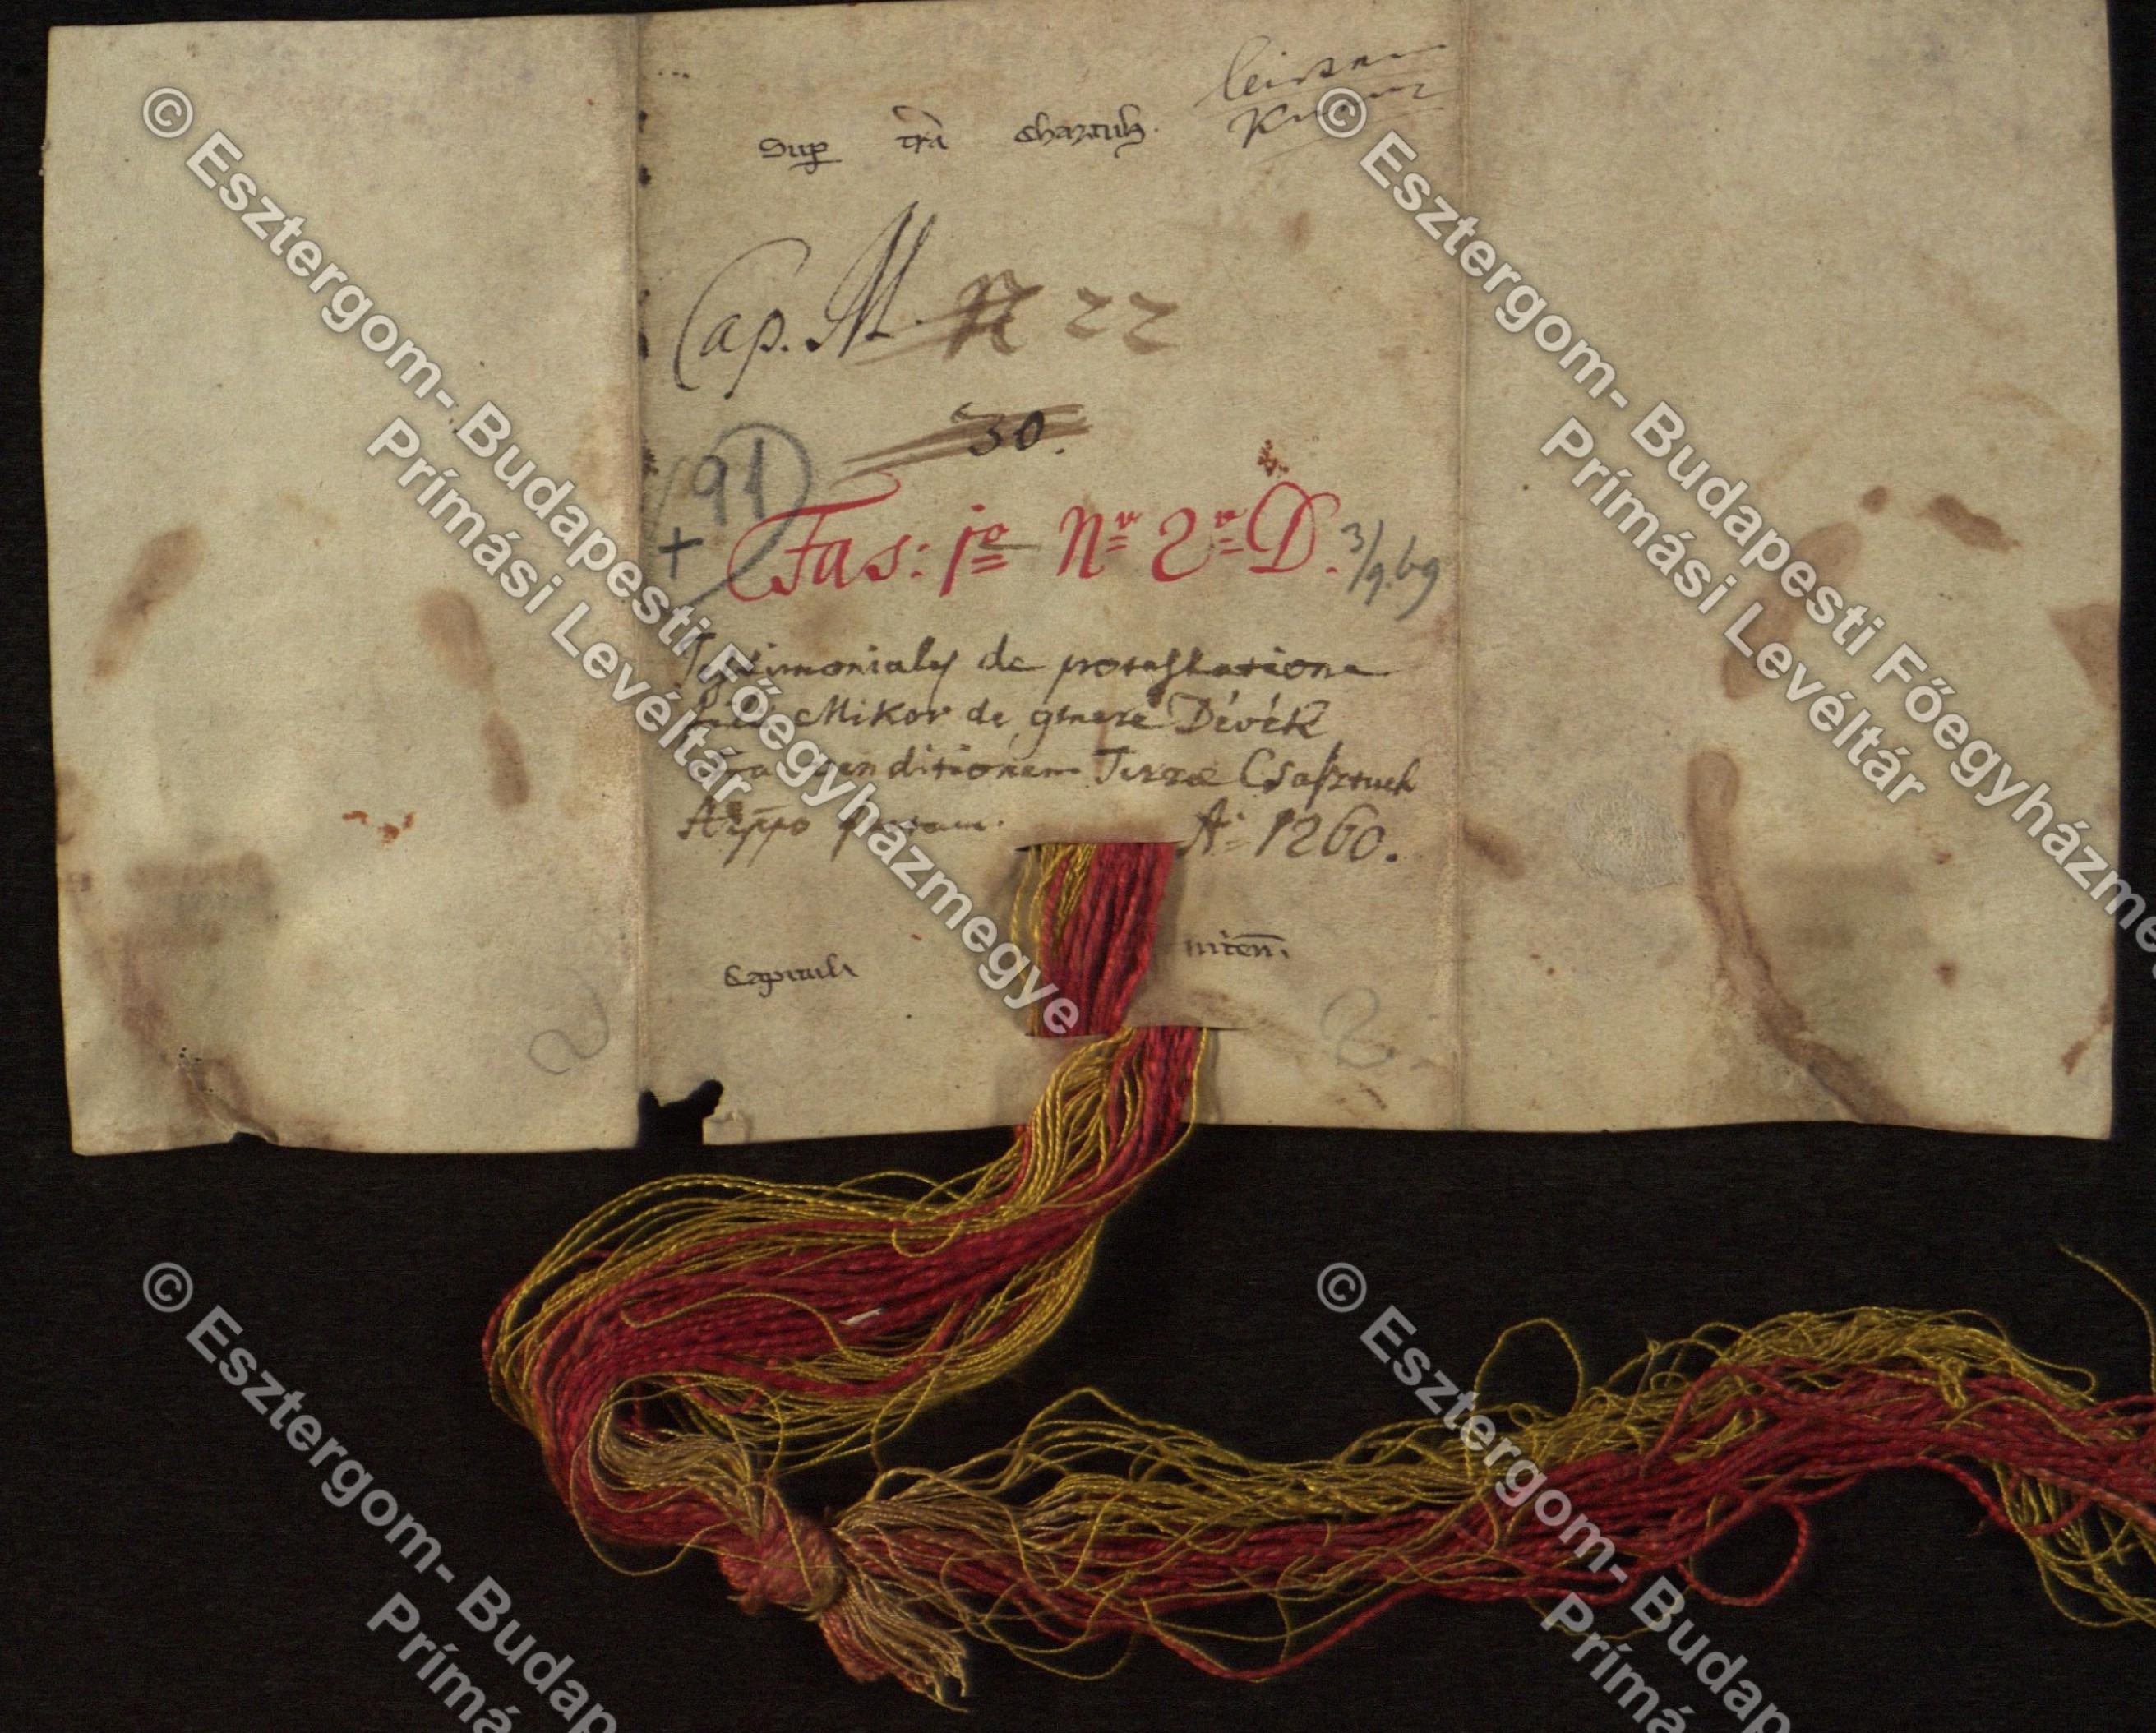 Sup t̄ra Chaztuh.
Cap. M. N 22
30.
91
+
Fas: 1o No 2o D. 3/9.69
Testimoniales de protestatione
Mikor de genere Dévék
venditionem Terræ Csasztueh
Aeppo A: 1260.
Capituli niten.
2
2
© Esztergom-Budapesti Főegyházmegye
Prímási Levéltár
© Esztergom-Budapesti Főegyházme
Prímási Levéltár
© Esztergom-Budap
Prímá
© Esztergom-Budap
Prímá